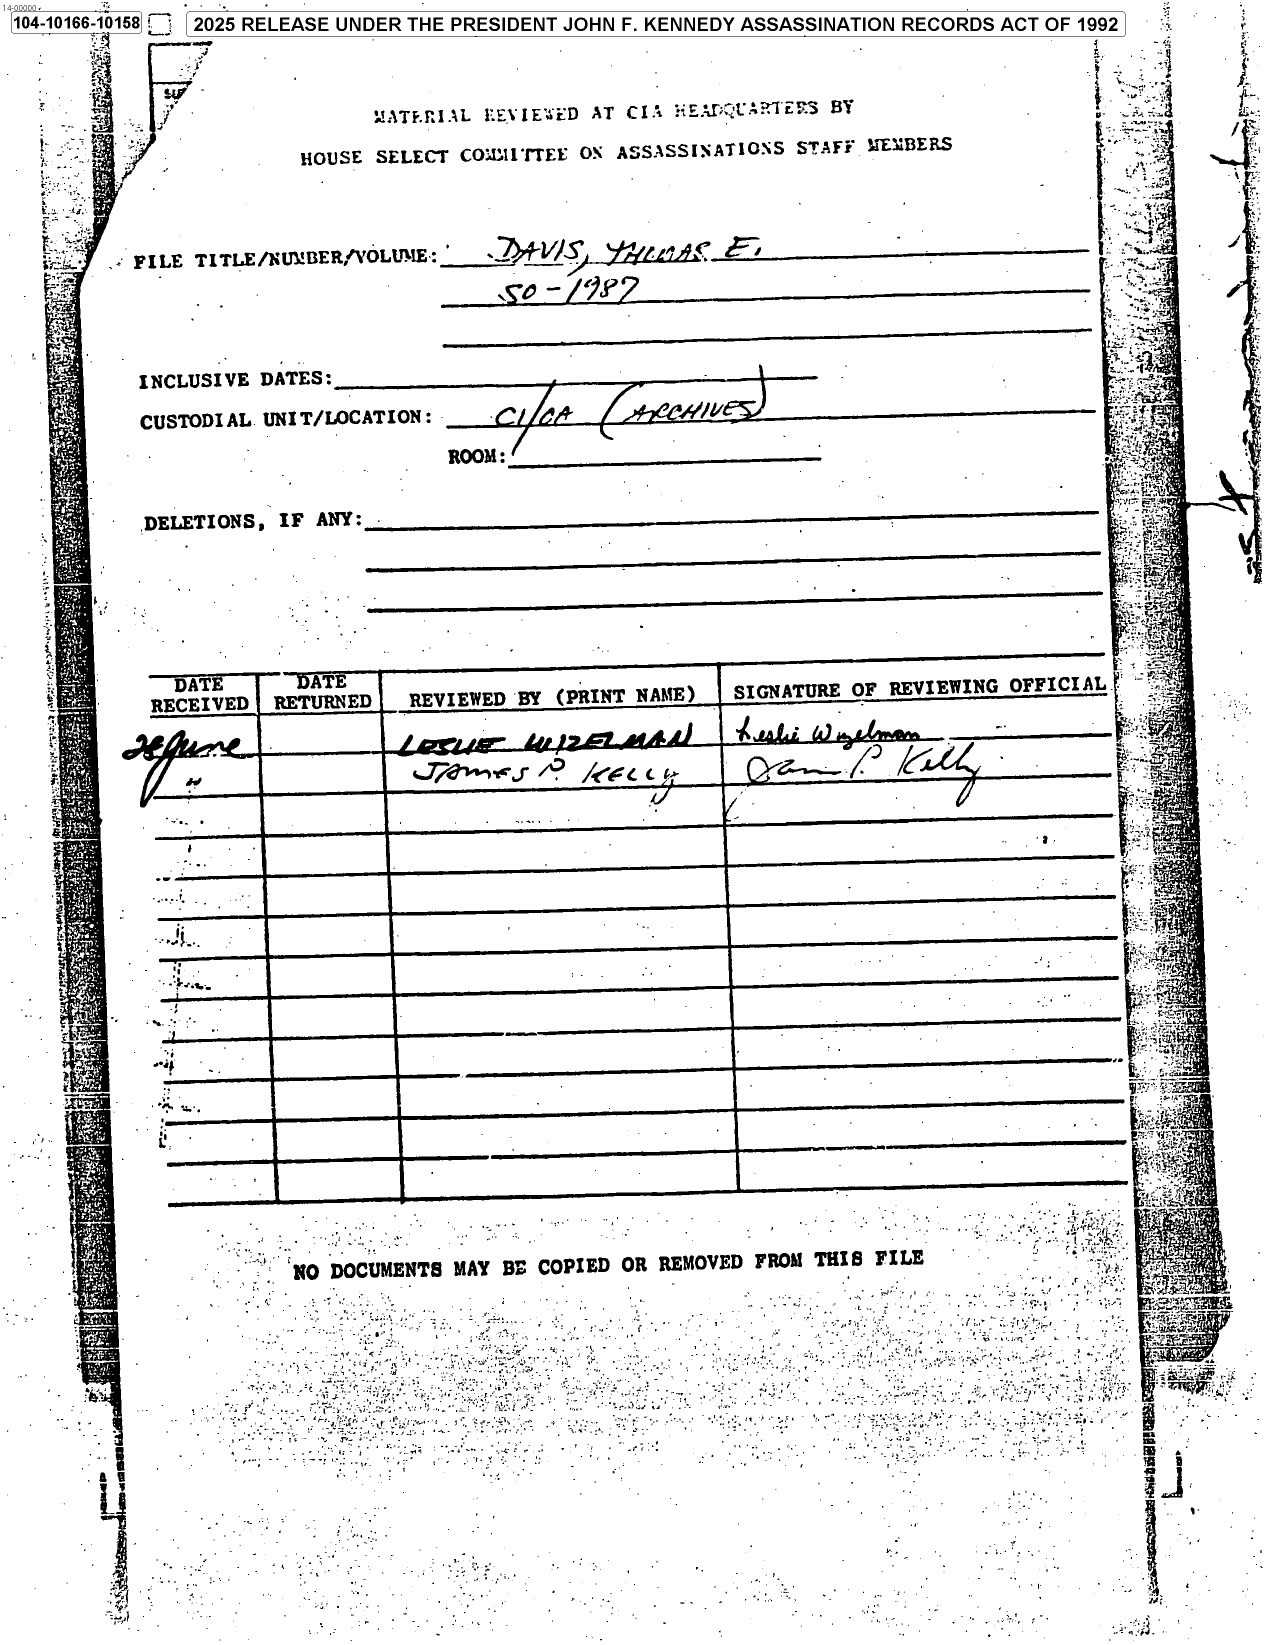 14-00000
104-10166-10158
2025 RELEASE UNDER THE PRESIDENT JOHN F. KENNEDY ASSASSINATION RECORDS ACT OF 1992
MATERIAL REVIEWED AT CIA HEADQUARTERS BY
HOUSE SELECT COMMITTEE ON ASSASSINATIONS STAFF MEMBERS
FILE TITLE/NUMBER/VOLUME: DAVIS, THOMAS E.
50-1987
INCLUSIVE DATES:
CUSTODIAL UNIT/LOCATION: CI/OA (ARCHIVES)
ROOM:
DELETIONS, IF ANY:
DATE RECEIVED DATE RETURNED REVIEWED BY (PRINT NAME) SIGNATURE OF REVIEWING OFFICIAL
28 June LESLIE WIZELMAN Leslie Wizelman
" JAMES P. KELLY James P. Kelly
NO DOCUMENTS MAY BE COPIED OR REMOVED FROM THIS FILE